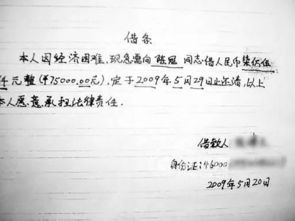 借条
本人因经济困难,现急需向陈冠同志借人民币柒万伍
仟元整(¥75000.00元),定于2009年5月29日还清,以上
本人愿意承担法律责任.
借款人
身份证:46000
2009年5月20日